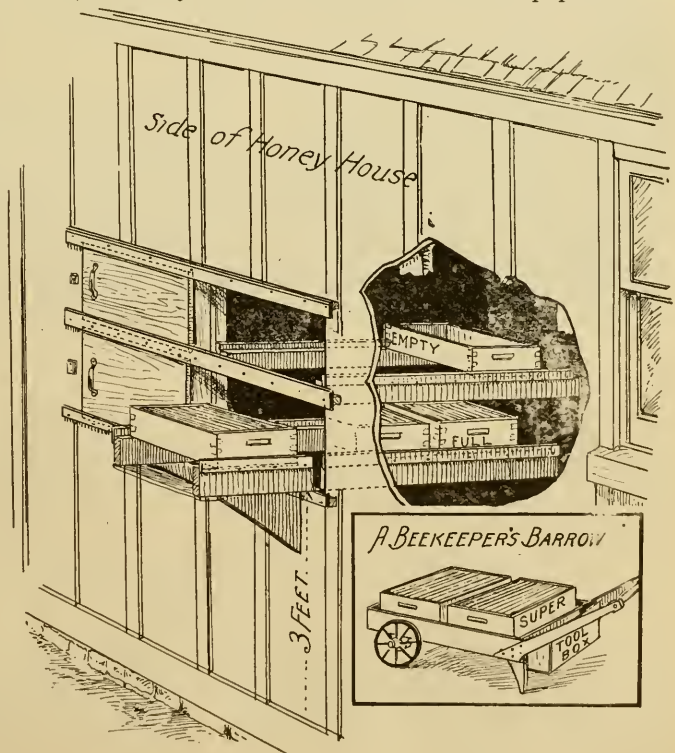 Side of Honey House
EMPTY
FULL
3 FEET.
A BEEKEEPER'S BARROW
SUPER
TOOL
BOX